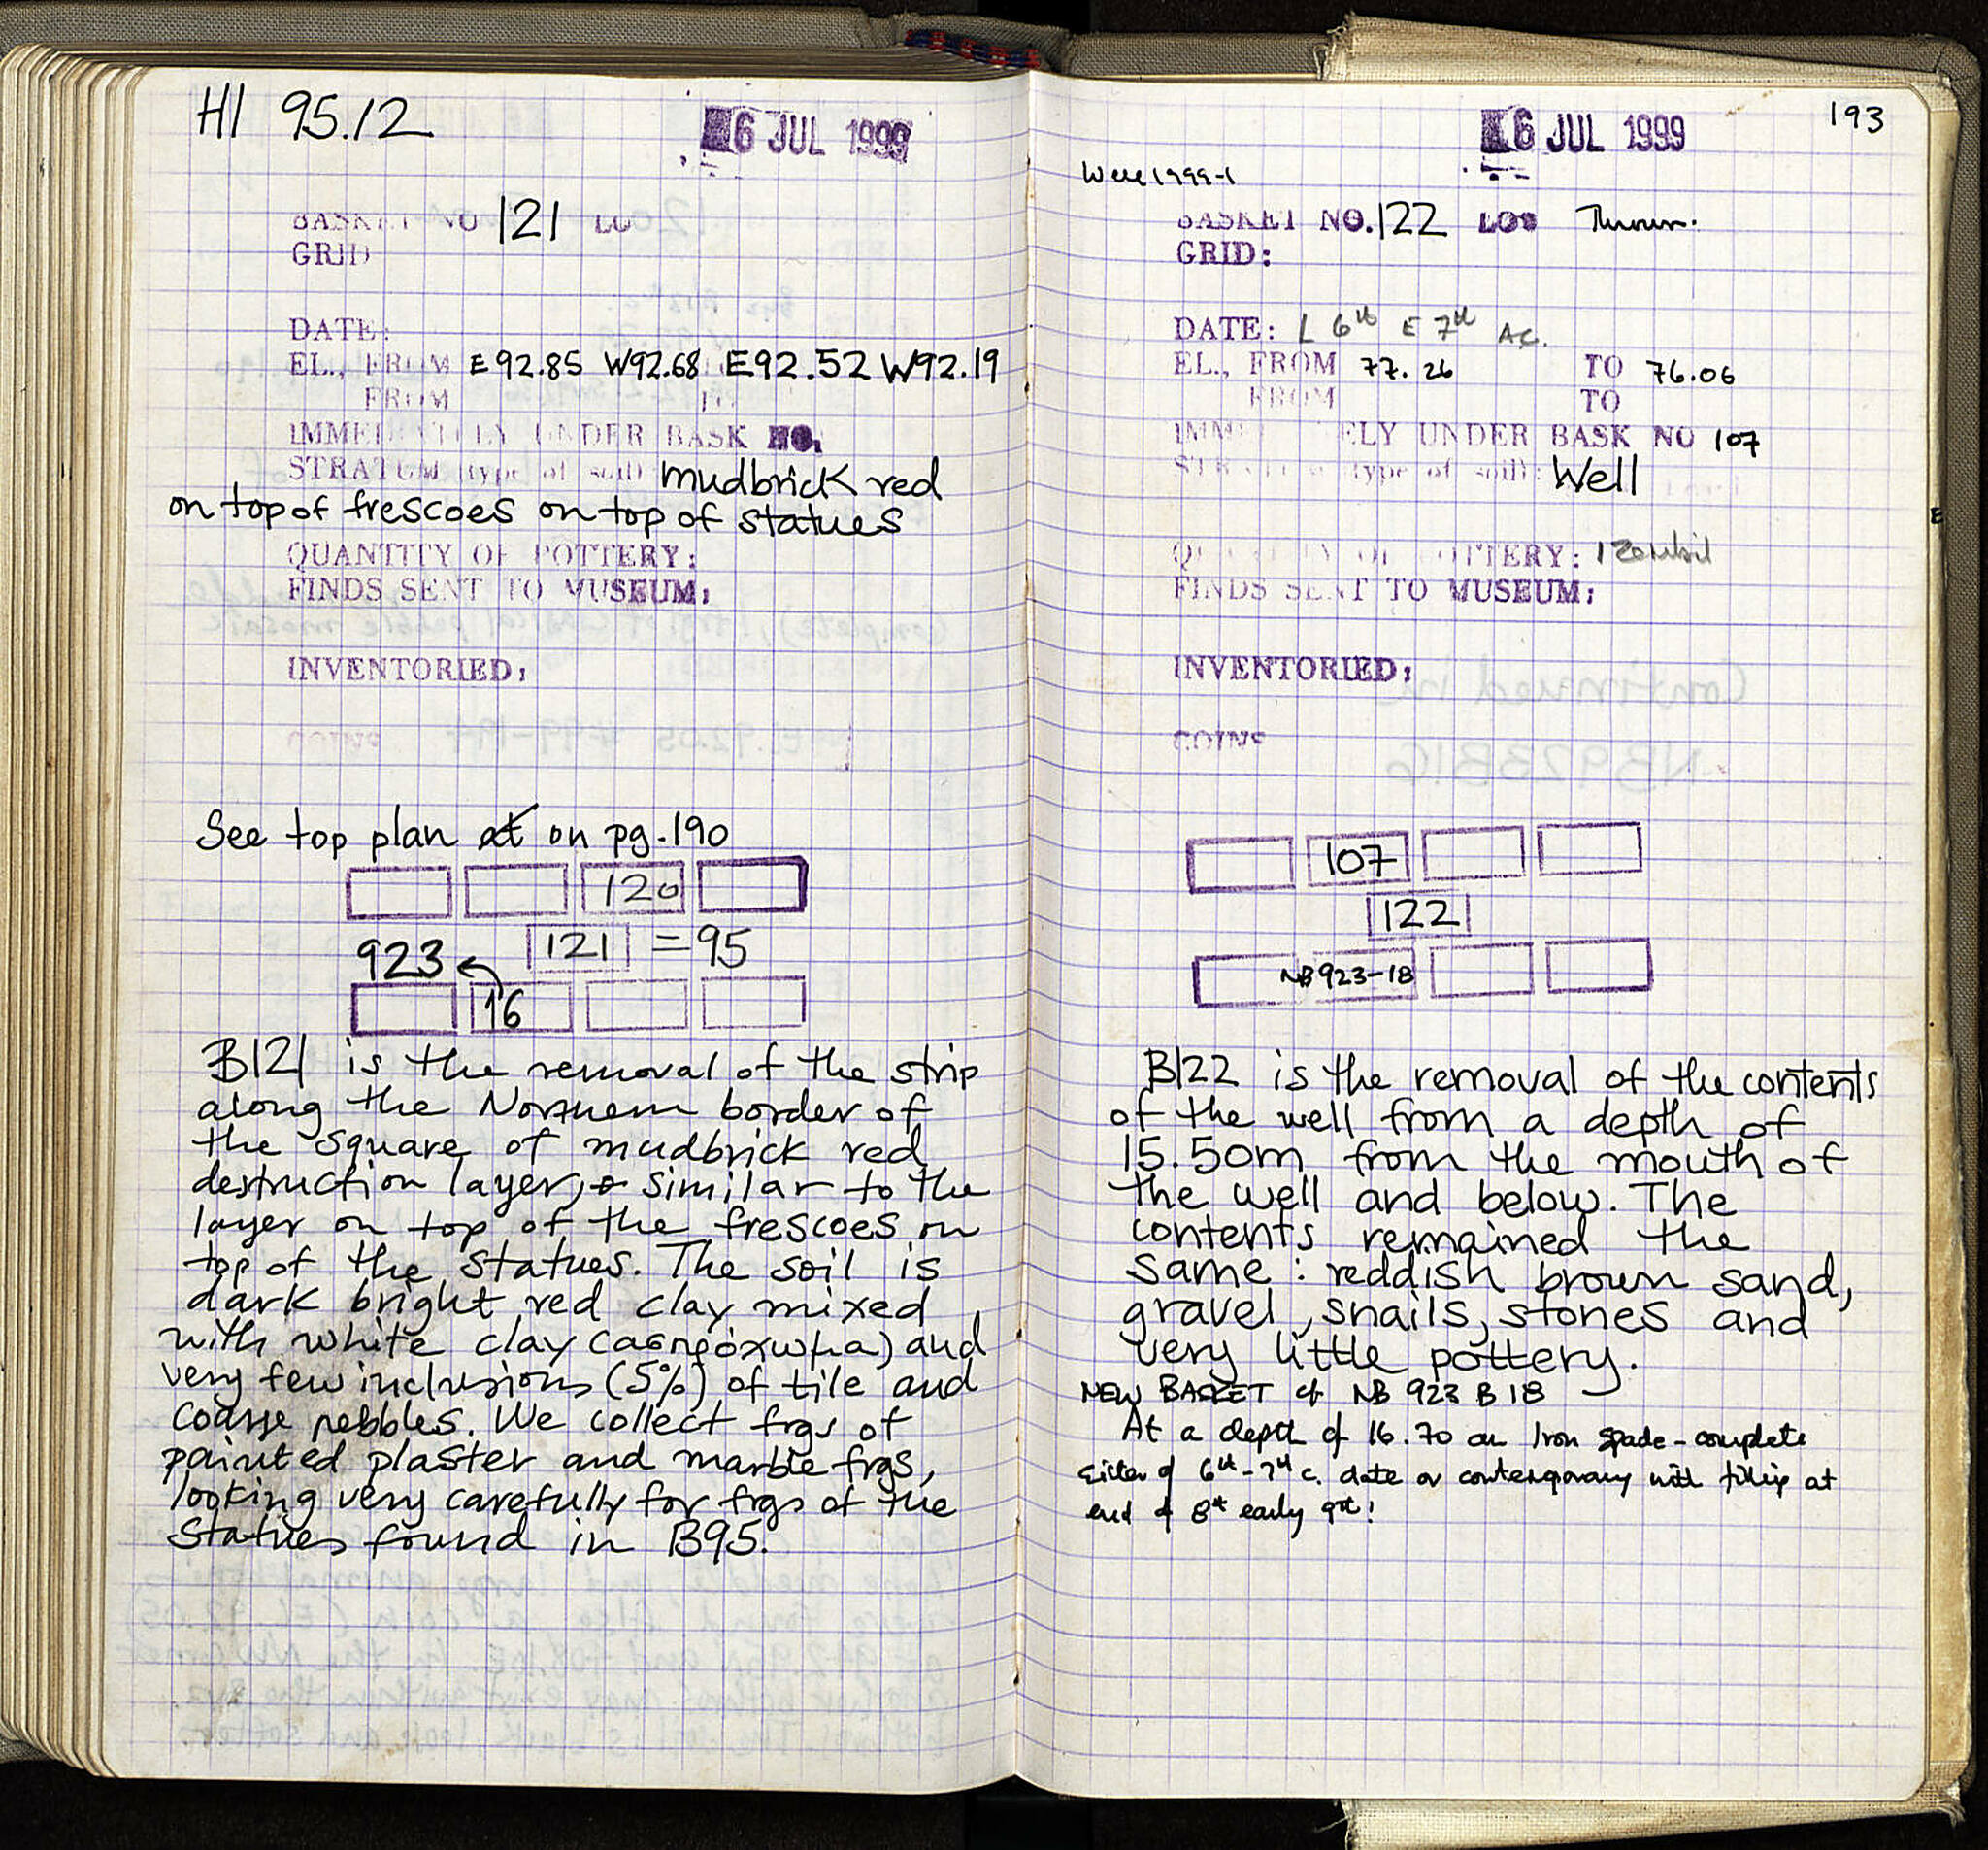 HI 95.12
6 JUL 1999
BASKET NO 121 LO
GRID
DATE:
EL., FROM E92.85 W92.68 E92.52 W92.19
FROM TO
IMMEDIATELY UNDER BASK NO.
STRATUM (type of soil) mudbrick red
on top of frescoes on top of statues
QUANTITY OF POTTERY:
FINDS SENT TO MUSEUM:
INVENTORIED:
See top plan at on pg. 190
120
923 121 = 95
16
B121 is the removal of the strip
along the Northern border of
the square of mudbrick red
destruction layer, similar to the
layer on top of the frescoes on
top of the statues. The soil is
dark bright red clay mixed
with white clay (ασπρόχωμα) and
very few inclusions (5%) of tile and
coarse pebbles. We collect frgs of
painted plaster and marble frgs,
looking very carefully for frgs of the
statues found in B95.
193
6 JUL 1999
Well 1999-1
BASKET NO. 122 LOT Thrown.
GRID:
DATE: L 6th E 7th AC.
EL., FROM 77.26 TO 76.06
FROM TO
IMMEDIATELY UNDER BASK NO 107
STRATUM (type of soil): Well
QUANTITY OF POTTERY: 1
FINDS SENT TO MUSEUM:
INVENTORIED:
COINS
107
122
NB923-18
B122 is the removal of the contents
of the well from a depth of
15.50m from the mouth of
the well and below. The
contents remained the
same: reddish brown sand,
gravel, snails, stones and
very little pottery.
NEW BASKET cf NB 923 B 18
At a depth of 16.70 an Iron spade - complete
either of 6th-7th c. date or contemporary with filling at
end of 8th early 9th!